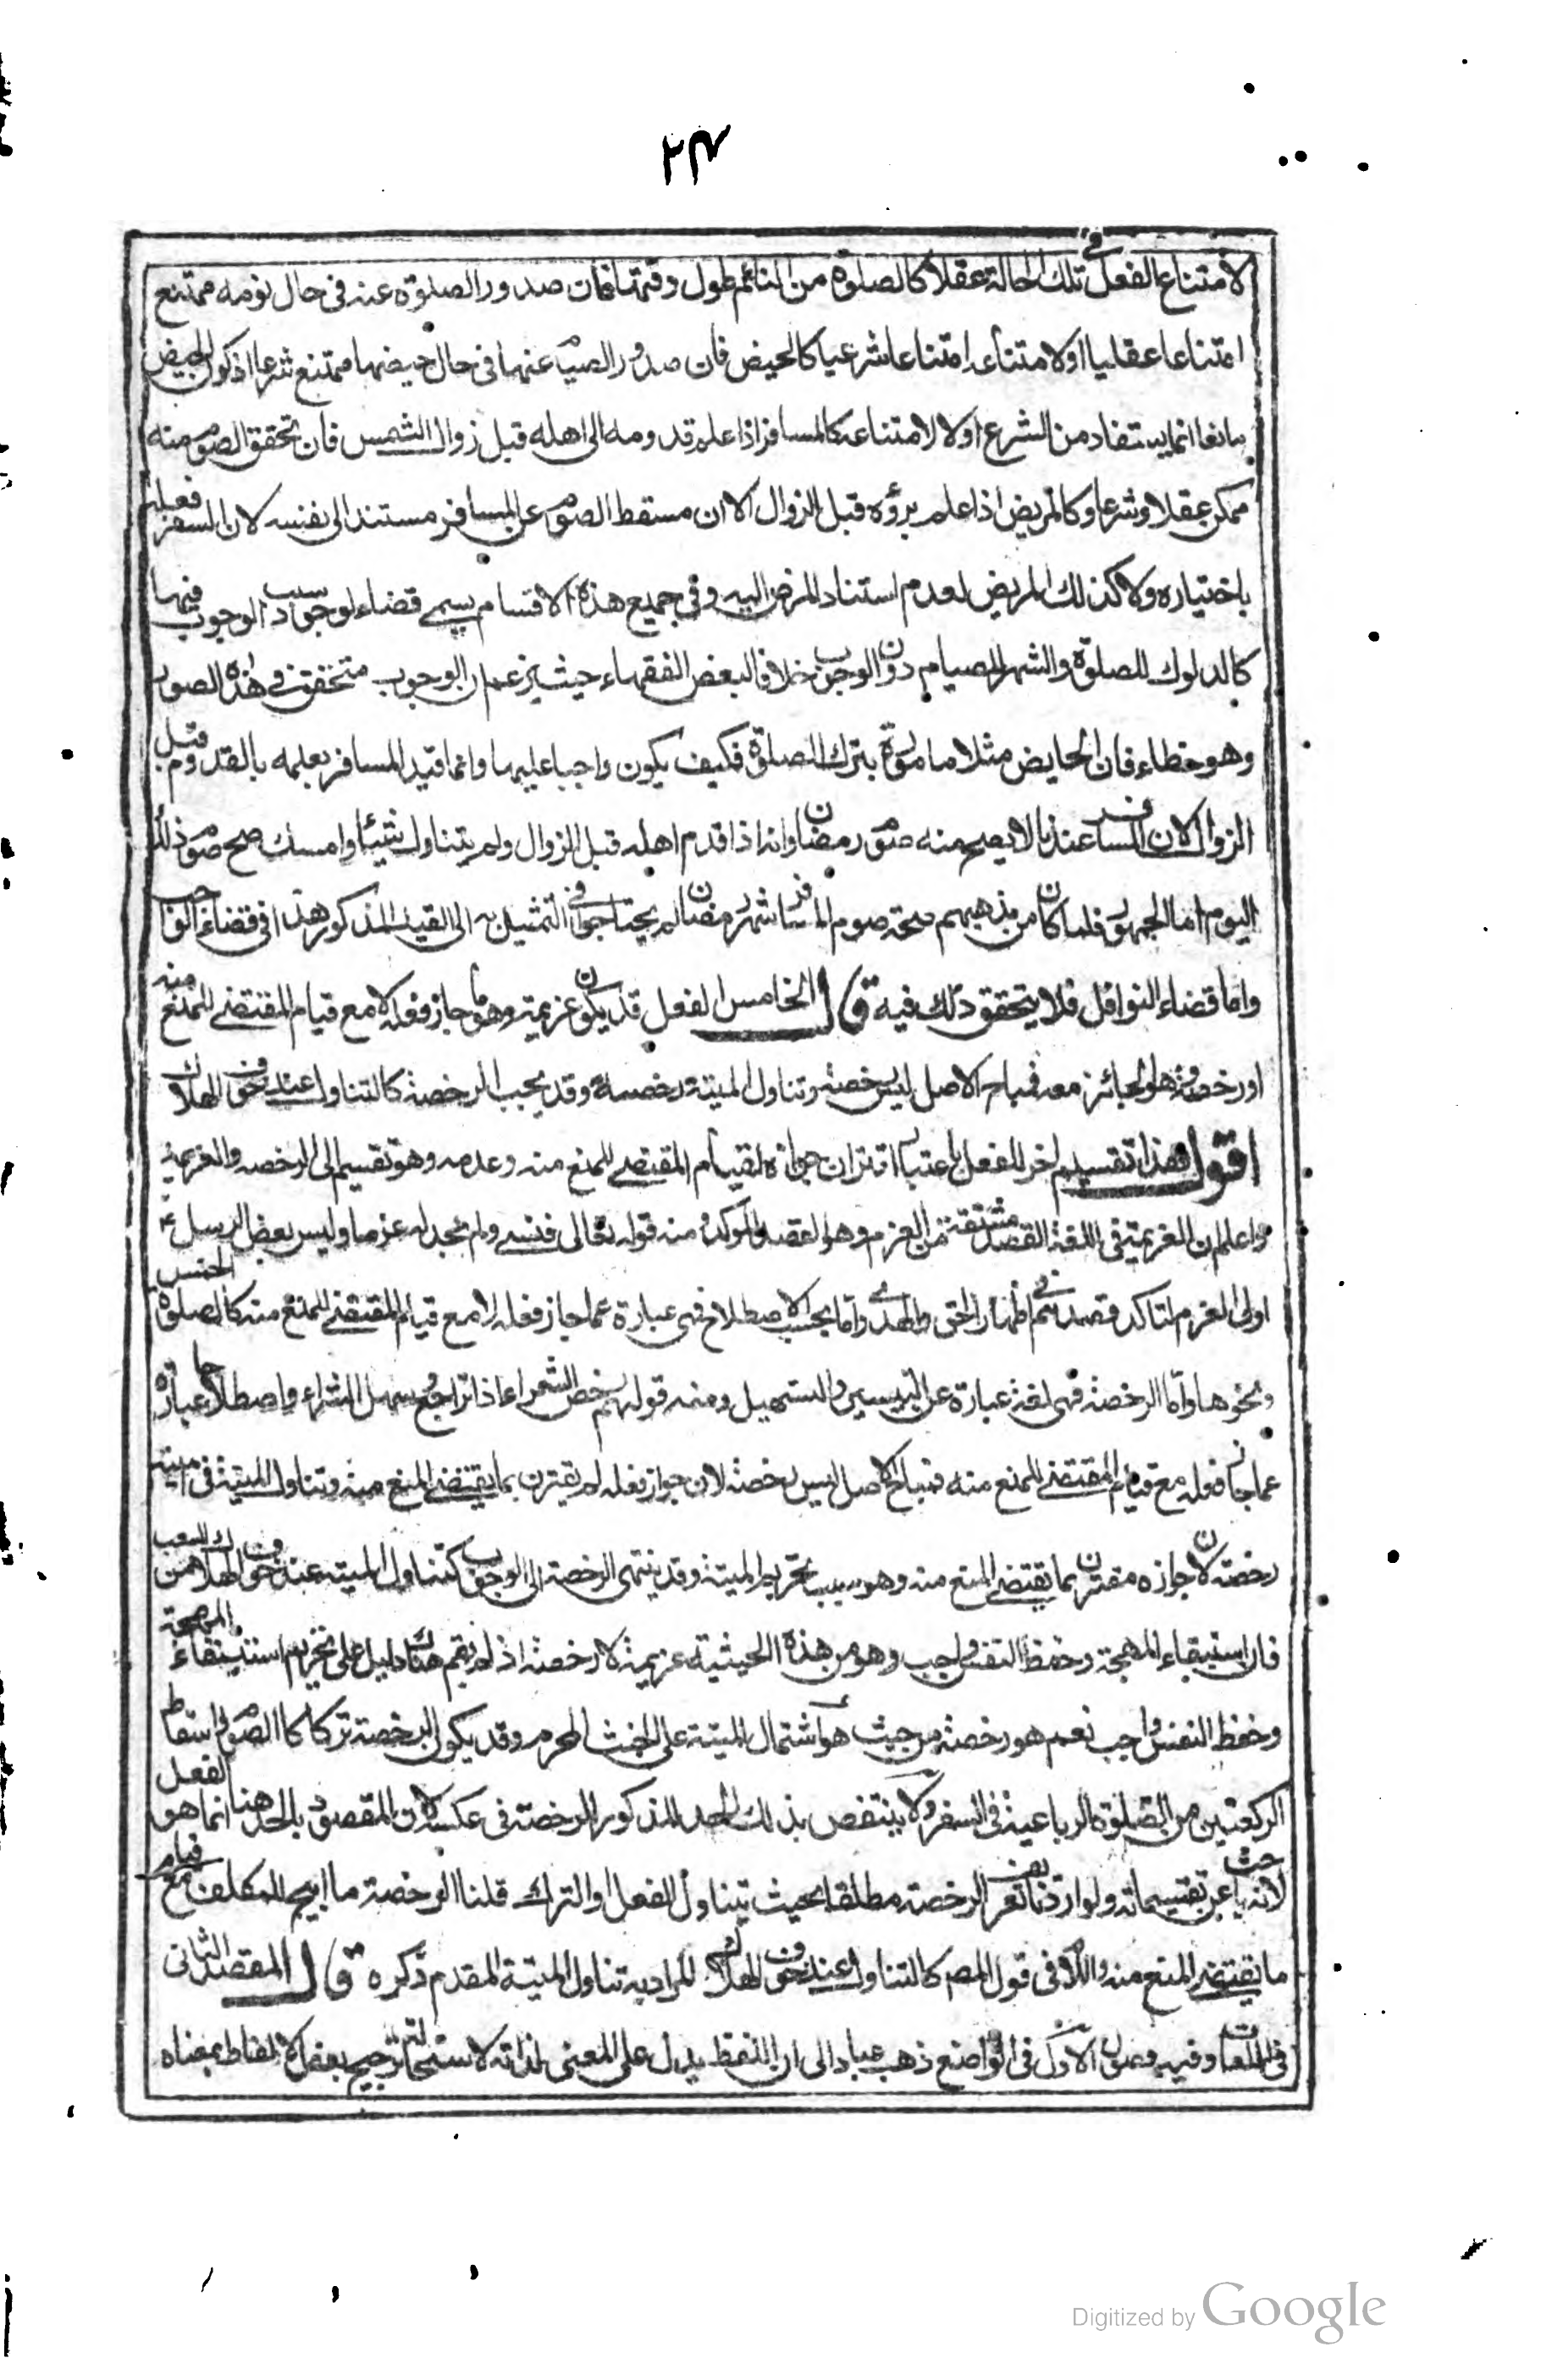 ٢٣
لامتناع الفعل في تلك الحالة عقلا كالصلوة من النائم طول وقتها فان صدور الصلوة عنه في حال نومه ممتنع
امتناعا عقليا او لامتناعه امتناعا شرعيا كالحيض فان صدور الصيام عنها في حال حيضها ممتنع شرعا اذ كون الحيض
مانعا انما يستفاد من الشرع او لا لامتناعه كالمسافر اذا علم قدومه الى اهله قبل زوال الشمس فان تحقق الصوم منه
ممكن عقلا وشرعا وكالمريض اذا علم برؤه قبل الزوال الا ان مسقط الصوم عن المسافر مستند الى نفسه لان السفر فعله
باختياره ولا كذلك المريض لعدم استناد المرض اليه وفي جميع هذه الاقسام يسمى قضاء لوجود سبب الوجوب فيها
كالدلوك للصلوة والشهر للصيام دون الوجوب خلافا لبعض الفقهاء حيث يزعم ان الوجوب متحقق في هذه الصور
وهو خطاء فان الحايض مثلا مامورة بترك الصلوة فكيف يكون واجبا عليها وانما قيد المسافر بعلمه بالقدوم قبل
الزوال لان المسافر عندنا لا يصح منه صوم رمضان وانه اذا قدم اهله قبل الزوال ولم يتناول شيئا وامسك صح صوم ذلك
اليوم اما الجمهور فلما كان من مذهبهم صحة صوم المسافر شهر رمضان لم يحتاجوا في التمثيل به الى القيد المذكور هذا في قضاء الواجب
واما قضاء النوافل فلا يتحقق ذلك فيه قال الخامس الفعل قد يكون عزيمة وهو ما جاز فعله لا مع قيام المقتضي للمنع منه
او رخصة وهو الجائز معه فمباح الاصل ليس رخصة وتناول الميتة رخصة وقد يجب الرخصة كالتناول عند خوف الهلاك
اقول هذا تقسيم اخر للفعل باعتبار اقتران جوازه لقيام المقتضي للمنع منه وعدمه وهو تقسيم الى الرخصه والعزيمة
واعلم ان العزيمة في اللغة القصد مشتقة من العزم وهو القصد المؤكد ومنه قوله تعالى فنسي ولم نجد له عزما وليس بعض الرسل
اولي العزم لتاكد قصدهم في اظهار الحق والهدى واما بحسب الاصطلاح فهي عبارة عما جاز فعله لا مع قيام المقتضي للمنع منه كالصلوة الخمس
ونحوها واما الرخصة فهي لغة عبارة عن التيسير والتسهيل ومنه قولهم رخص السعر اذا تراجع وسهل الشراء واصطلاحا عبارة
عما جاز فعله مع قيام المقتضي للمنع منه فمباح الاصل ليس رخصة لان جواز فعله لم يقترن بما يقتضي المنع منه وتناول الميتة
رخصة لان جوازه مقترن بما يقتضي المنع منه وهو سبب تحريم الميتة وقد ينتهي الرخصة الى الوجوب كتناول الميته عند خوف الهلاك من
فان استبقاء المهجة وحفظ النفس واجب وهو من هذه الحيثية عزيمة لا رخصة اذ لم يقم هناك دليل على تحريم استبقاء المهجة
وحفظ النفس واجب نعم هو رخصة من حيث هو اشتمال الميتة على الخبث المحرم وقد يكون الرخصة تركا كالصوم واسقاط
الركعتين من الصلوة الرباعية في السفر ولا ينتقض بذلك الحد المذكور للرخصة في عكسه لان المقصود بالحد هنا انما هو الفعل
لانه باحث عن تقسيماته ولو اردنا تعريف الرخصة مطلقا بحيث يتناول الفعل او الترك قلنا الرخصة ما ابيح للمكلف مع قيام
ما يقتضي المنع منه واللام في قول المصـ كالتناول عند خوف الهلاك المراد به تناول الميتة المقدم ذكره قال المقصد الثاني
في اللغات وفيه فصول الاول في الواضع ذهب عباد الى ان اللفظ يدل على المعنى لذاته لاستحالة ترجيح بعض الالفاظ بمعناه
Digitized by Google